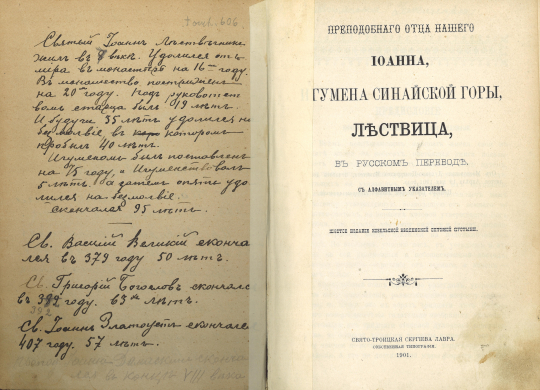 Святый Іоаннъ Лѣствичникъ
жилъ въ вѣкѣ. Удалился отъ
мира въ монастырь на 16 году.
Въ монашество постриженъ
на 20 году. Подъ руководст
вомъ старца былъ 19 лѣтъ.
И будучи 35 лѣтъ удалился на
безмолвіе въ которомъ
пробылъ 40 лѣтъ.
Игуменомъ былъ поставленъ
на 75 году, и Игуменствовалъ
5 лѣтъ. а затѣмъ опять уда
лился на безмолвіе.
скончался 95 лѣтъ.
Св. Василій Великій сконча
лся въ 379 году 50 лѣтъ.
Св. Григорій Богословъ скончался
въ году. 63 лѣтъ.
392
Св. Іоаннъ Златоустъ скончался
407 году. 57 лѣтъ.
въ концѣ VIII вѣка
ПРЕПОДОБНАГО ОТЦА НАШЕГО
ІОАННА,
ГУМЕНА СИНАЙСКОЙ ГОРЫ,
ЛѢСТВИЦА,
ВЪ РУССКОМЪ ПЕРЕВОДѢ,
СЪ АЛФАВИТНЫМЪ УКАЗАТЕЛЕМЪ.
ШЕСТОЕ ИЗДАНІЕ КОЗЕЛЬСКОЙ ВВЕДЕНСКОЙ ОПТИНОЙ ПУСТЫНИ.
СВЯТО-ТРОИЦКАЯ СЕРГІЕВА ЛАВРА.
СОБСТВЕННАЯ ТИПОГРАФІЯ.
1901.